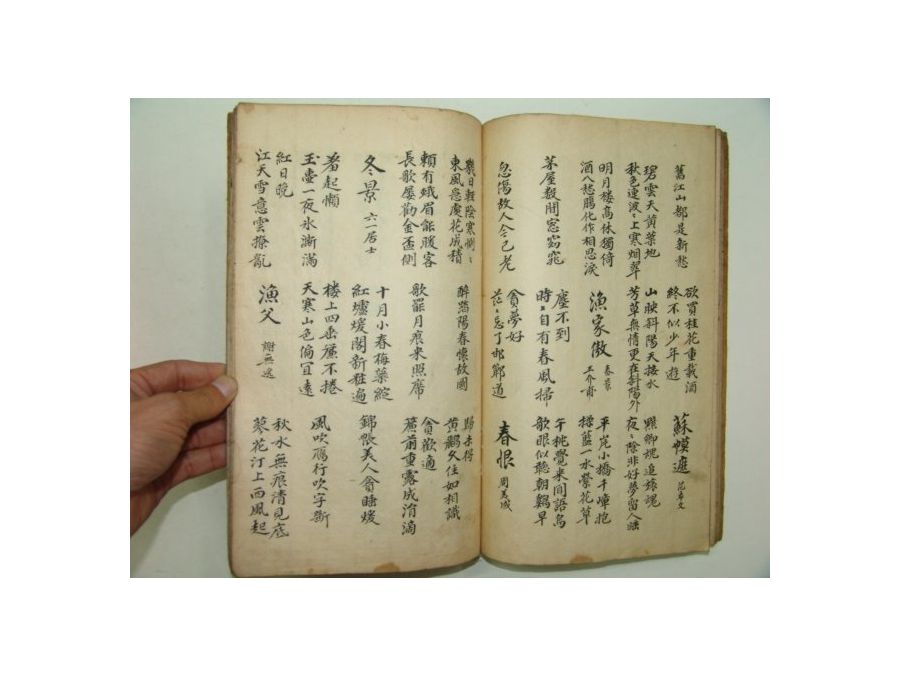 舊江山都是新愁
欲買桂花重載酒
終不似少年遊
蘇幙遮 范希文
碧雲天黃葉地
秋色連波〻上寒烟翠
山映斜陽天接水
芳草無情更在斜陽外
黯鄉魂追旅魂
夜〻除非好夢留人睡
明月楼高休獨倚
酒入愁膓化作相思淚
漁家傲 春景 王介甫
平岸小橋千嶂抱
揉藍一水縈花草
茅屋數間窓窈窕
塵不到
時〻自有春風掃
午枕覺来聞語鳥
欹眼似聽朝鷄早
忽憶故人今已老
貪夢好
茫〻忘了邯鄲道
春恨 周美成
幾日輕陰寒惻〻
東風急處花成積
醉踏陽春懷故國
歸未得
黃鸝久住如相識
頼有蛾眉能暖客
長歌屡勸金盃側
歌罷月痕来照席
貪歡適
簾前重露成涓滴
冬景 六一居士
十月小春梅蘂綻
紅爐煖閣新粧遍
錦帳美人貪睡煖
着起懶
玉壺一夜氷澌滿
楼上四垂簾不捲
天寒山色偏冝遠
風吹鴈行吹字断
紅日晚
江天雪意雲撩亂
漁父 謝無逸
秋水無痕清見底
蓼花汀上西風起